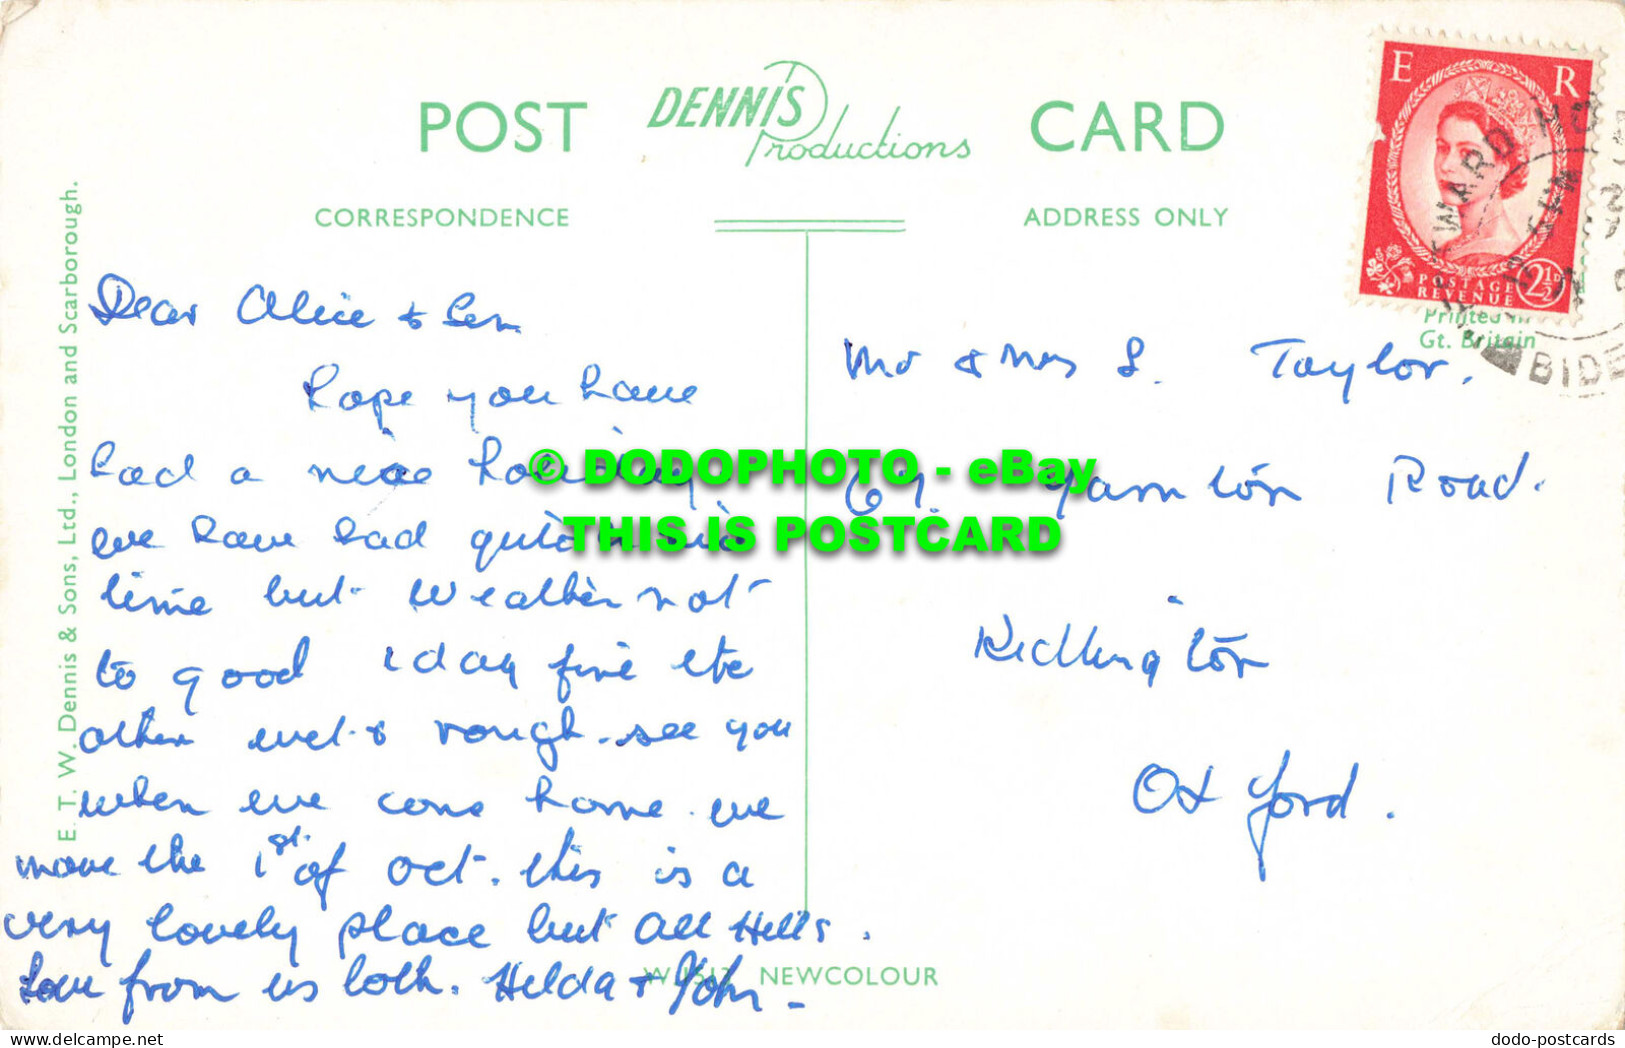 POST DENNIS Productions CARD
CORRESPONDENCE
ADDRESS ONLY
E R
POSTAGE REVENUE 2½D
Printed in
Gt. Britain
BIDE
E. T. W. Dennis & Sons, Ltd., London and Scarborough.
Dear Alice & Len
hope you have
had a nice holiday.
we have had quite a
time but weather not
to good 1 day fine the
other wet & rough. see you
when we come home. we
move the 1st of Oct. this is a
very lovely place but all Hills.
Love from us both. Hilda & John -
Mr & Mrs L. Taylor.
67. Yarnton Road.
Kidlington
Oxford.
© DODOPHOTO - eBay
THIS IS POSTCARD
NEWCOLOUR
dodo-postcards